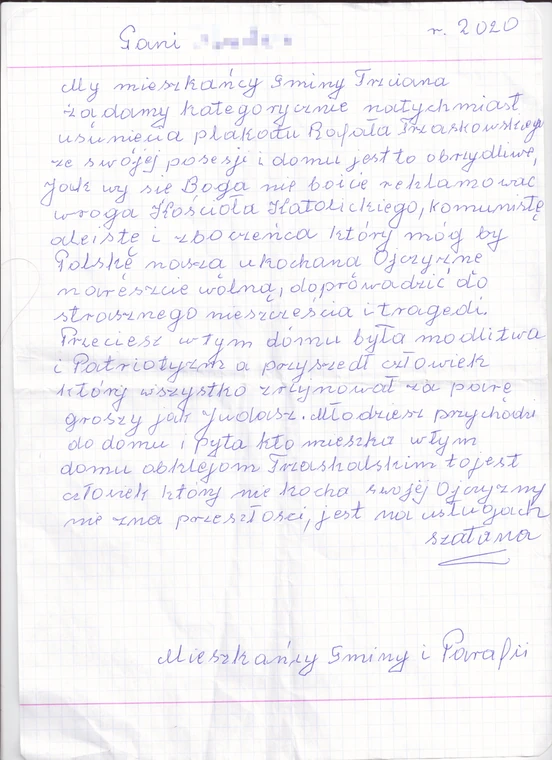 Pani r. 2020
My mieszkańcy Gminy Trzciana
żądamy kategorycznie natychmiast
usunięcia plakatu Rafała Trzaskowskiego
ze swojej posesji i domu jest to obrzydliwe,
Jak wy się Boga nie boicie reklamować
wroga Kościoła Katolickiego, komunistę
ateistę i zboczeńca który mógł by
Polskę naszą ukochaną Ojczyznę
nareszcie wolną, doprowadzić do
strasznego nieszczęścia i tragedi.
Przeciesz w tym domu była modlitwa
i Patriotyzm a przyszedł człowiek
który wszystko zrujnował za parę
groszy jak Judasz. Młodziesz przychodzi
do domu i pyta kto mieszka w tym
domu obklejom Trzaskalskim to jest
człowiek który nie kocha swojej Ojczyzny
nie zna przeszłości, jest na usługach
szatana
Mieszkańcy Gminy i Parafii